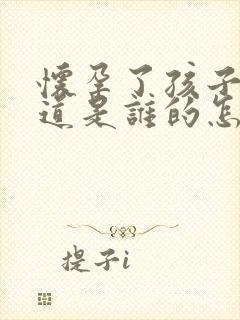 懷孕了孩子
道是誰的怎
提子i